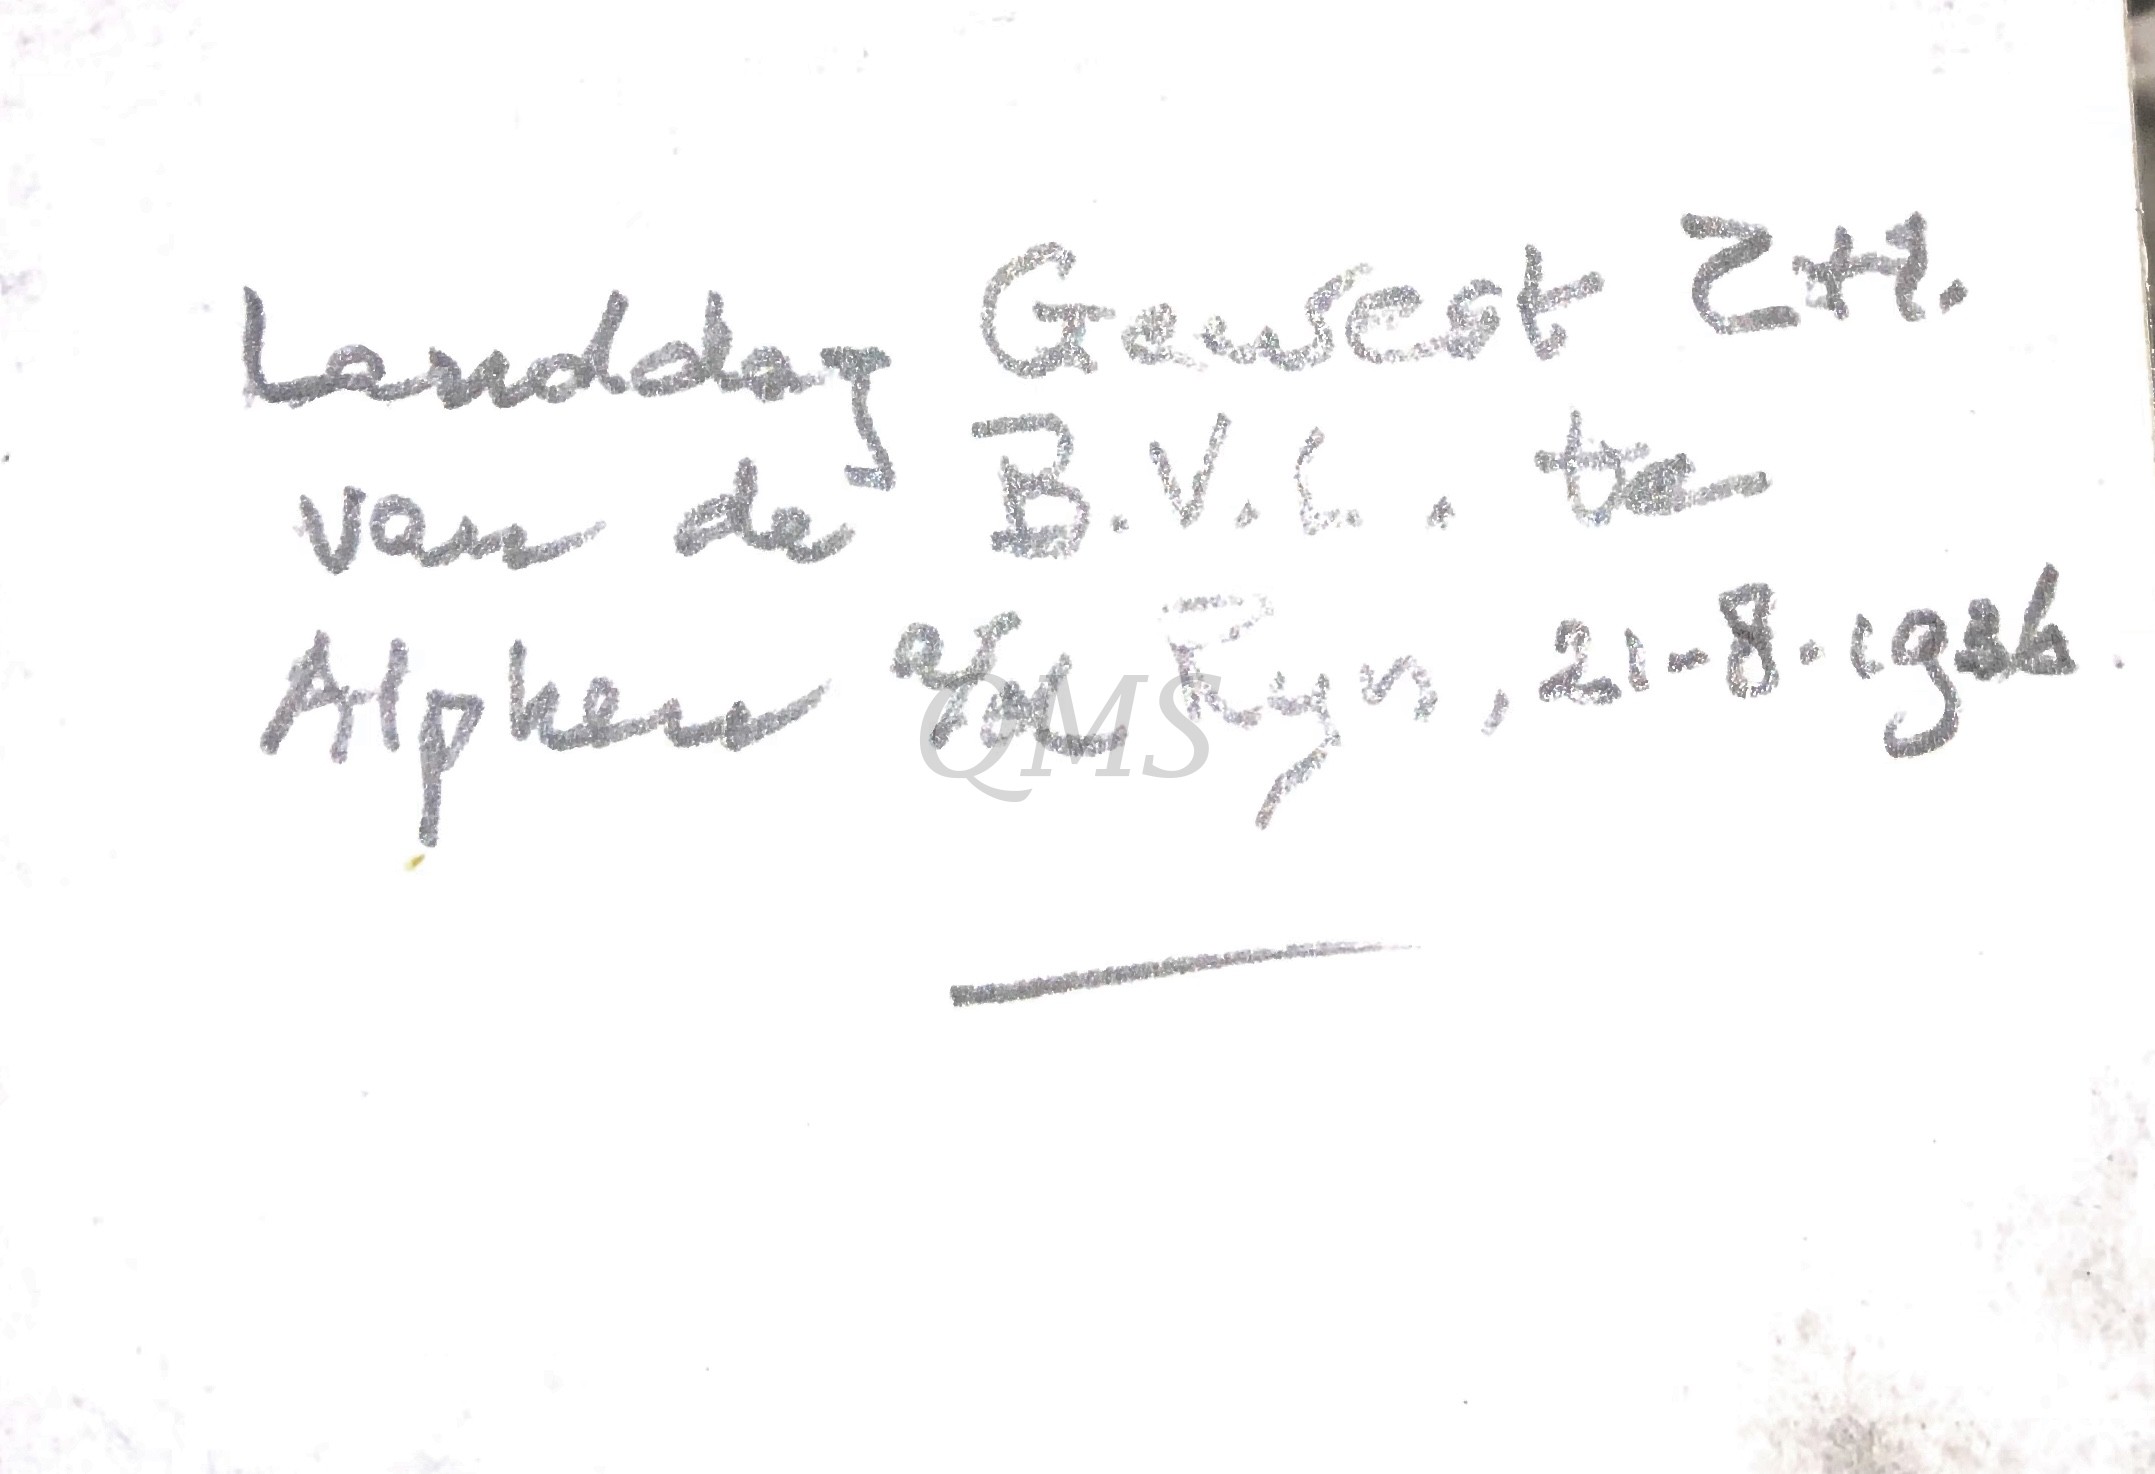 Landdag Gewest ZH.
van de B.V.L. te
Alphen a/d Ryn, 21-8-1936.
QMS